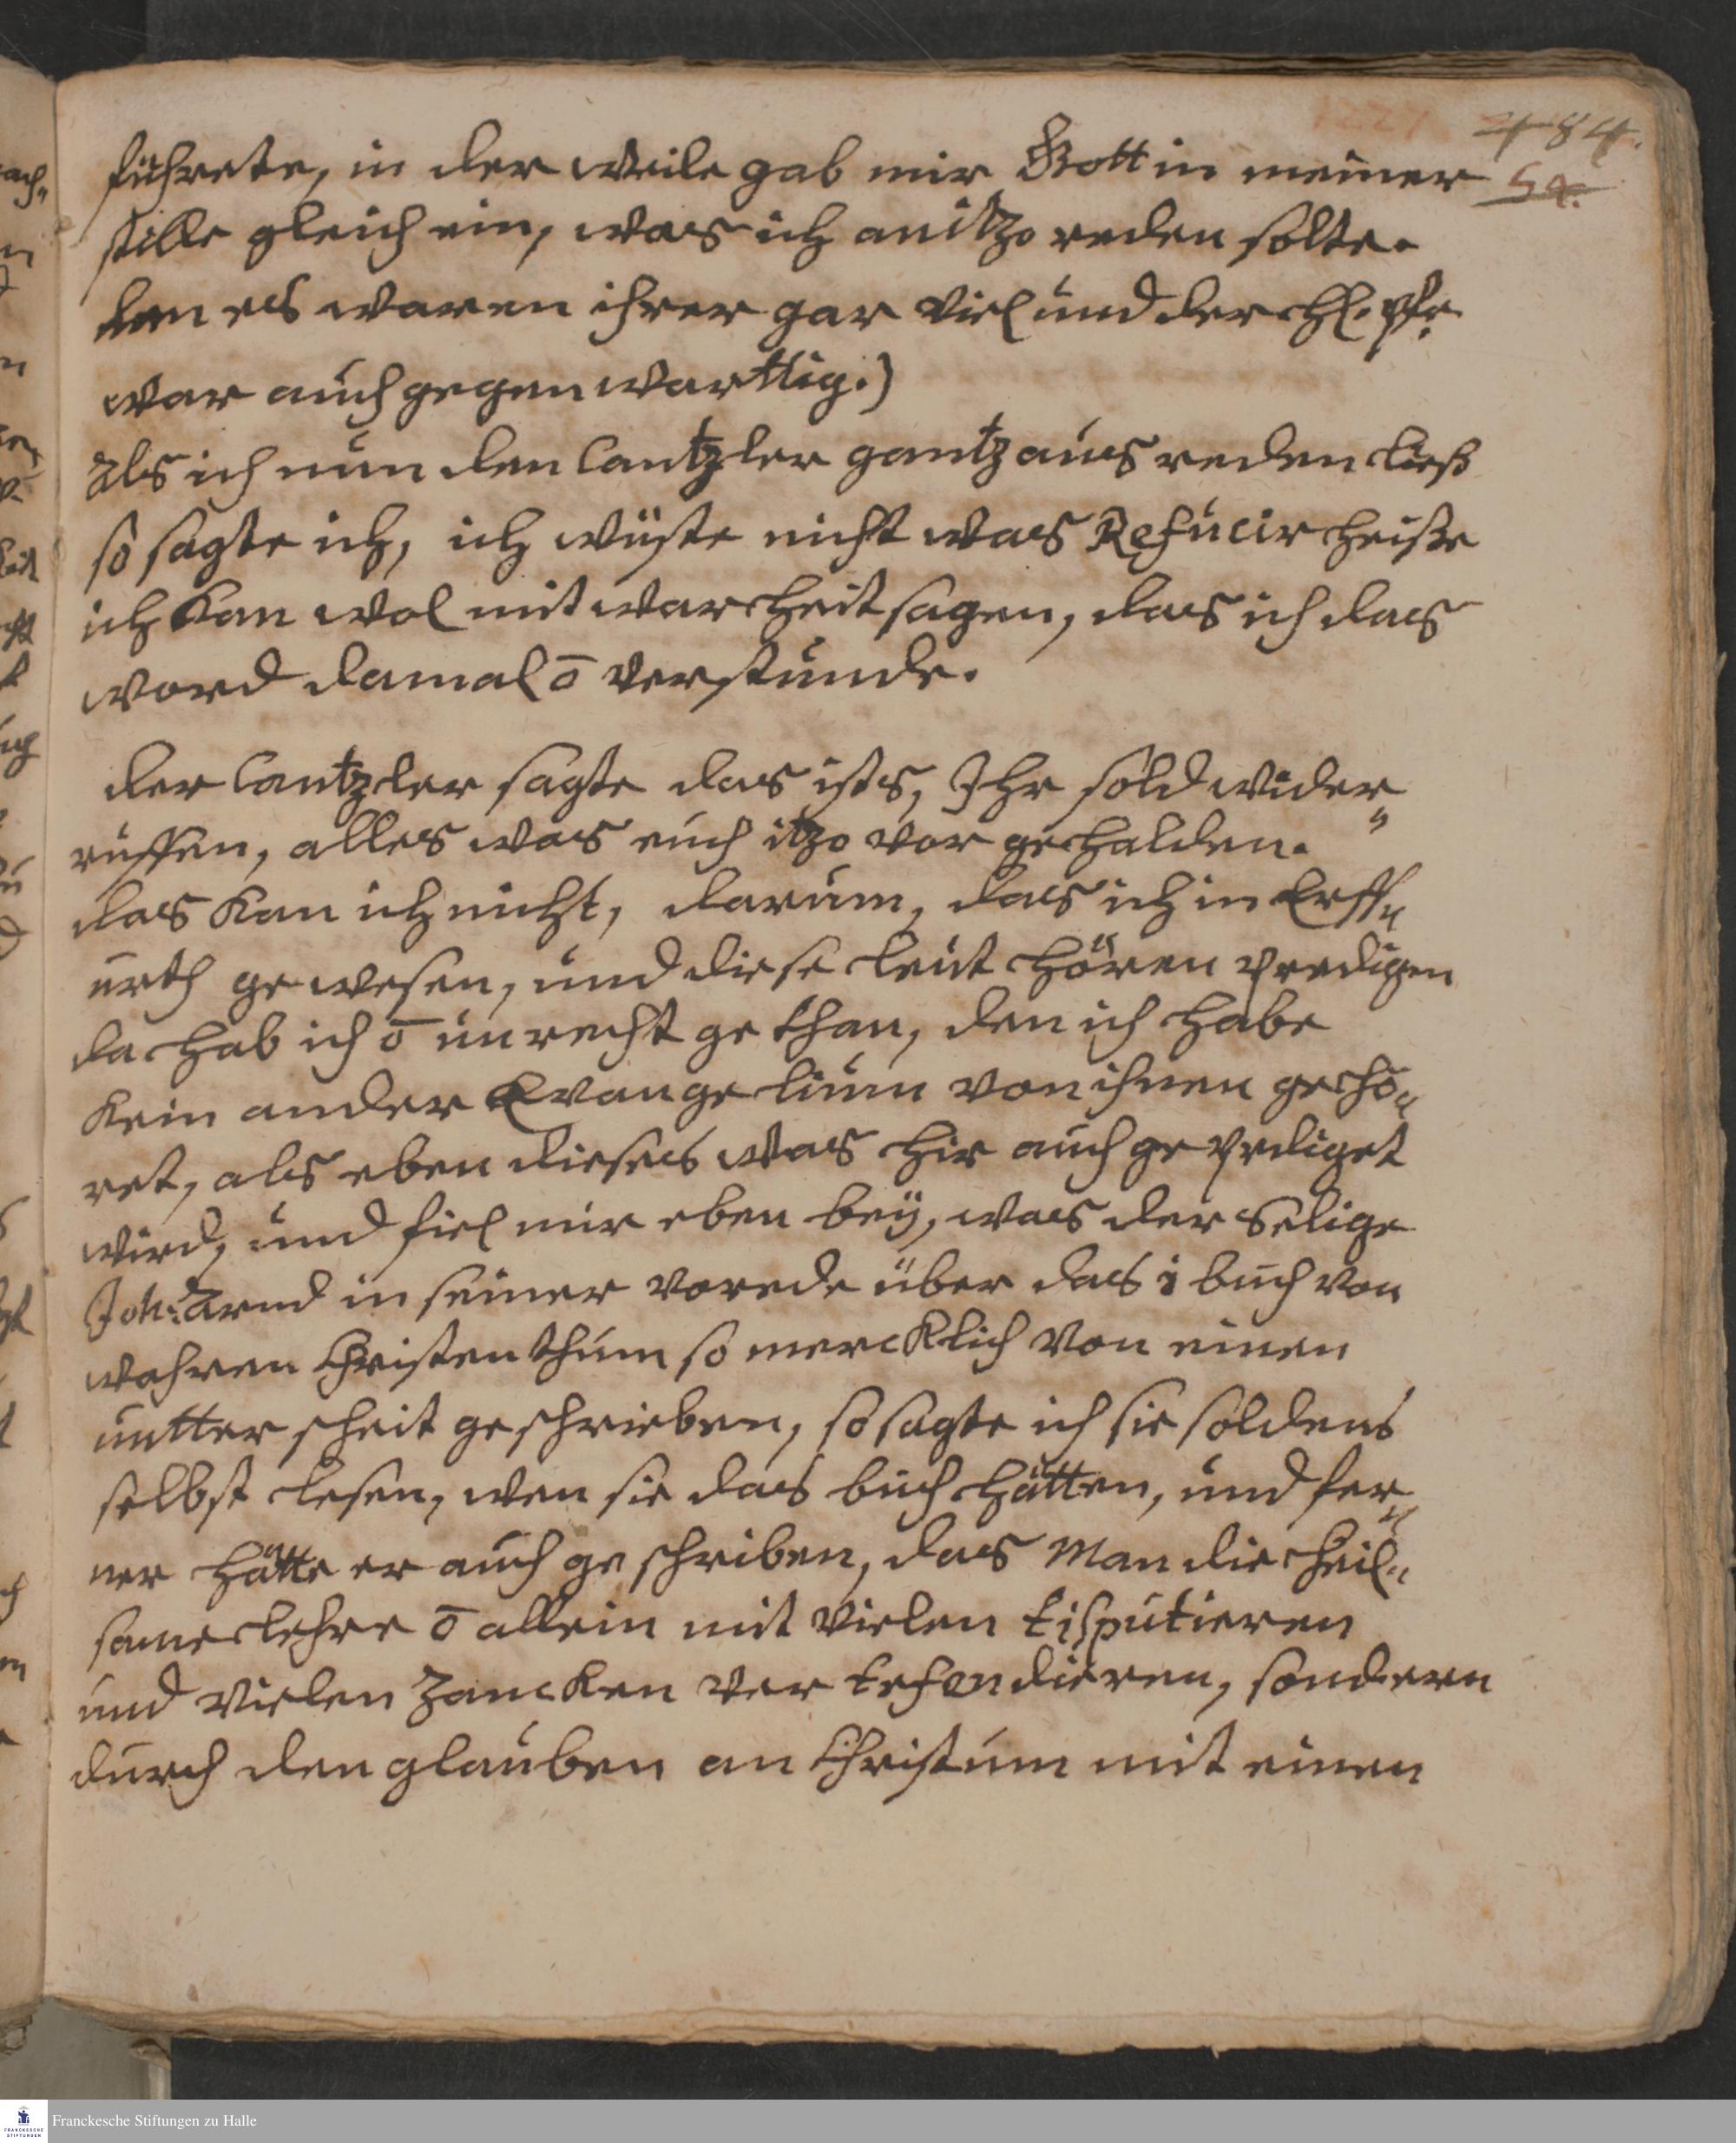 484.
54.
führete, in der weile gab mir Gott in meiner
stille gleich ein, was ich anitzo reden solte.
den es waren ihrer gar viel und der H. Pfr.
war auch gegenwarttig.)
Als ich nun den Cantzler gantz aus reden ließ
so sagte ich, ich wüste nicht was Refucir heiße
ich kan wol mit warheit sagen, das ich das
word damal o̅ verstunde.
der Cantzler sagte das ists, Ihr sold wider„
ruffen, alles was euch itzo vor gehalden.
das kan ich nicht, darum, das ich in Erff„
urth gewesen, und diese leut hören predigen
da hab ich o̅ unrecht gethan, den ich habe
kein ander Evangelium von ihnen gehö„
ret, als eben dieses was hir auch geprediget
wird, und fiel mir eben beÿ, was der Selige
Joh: Arnd in seiner vorede über das i buch von
wahren Christenthum so mercklich von einen
untterscheit geschrieben, so sagte ich sie soldens
selbst lesen, wen sie das buch hätten, und fer„
ner hätte er auch geschriben, das Man die heil„
same lehre o̅ allein mit vielen tisputieren
und vielen Zancken ver tefendieren, sondern
durch den glauben an Christum mit einen
Franckesche Stiftungen zu Halle